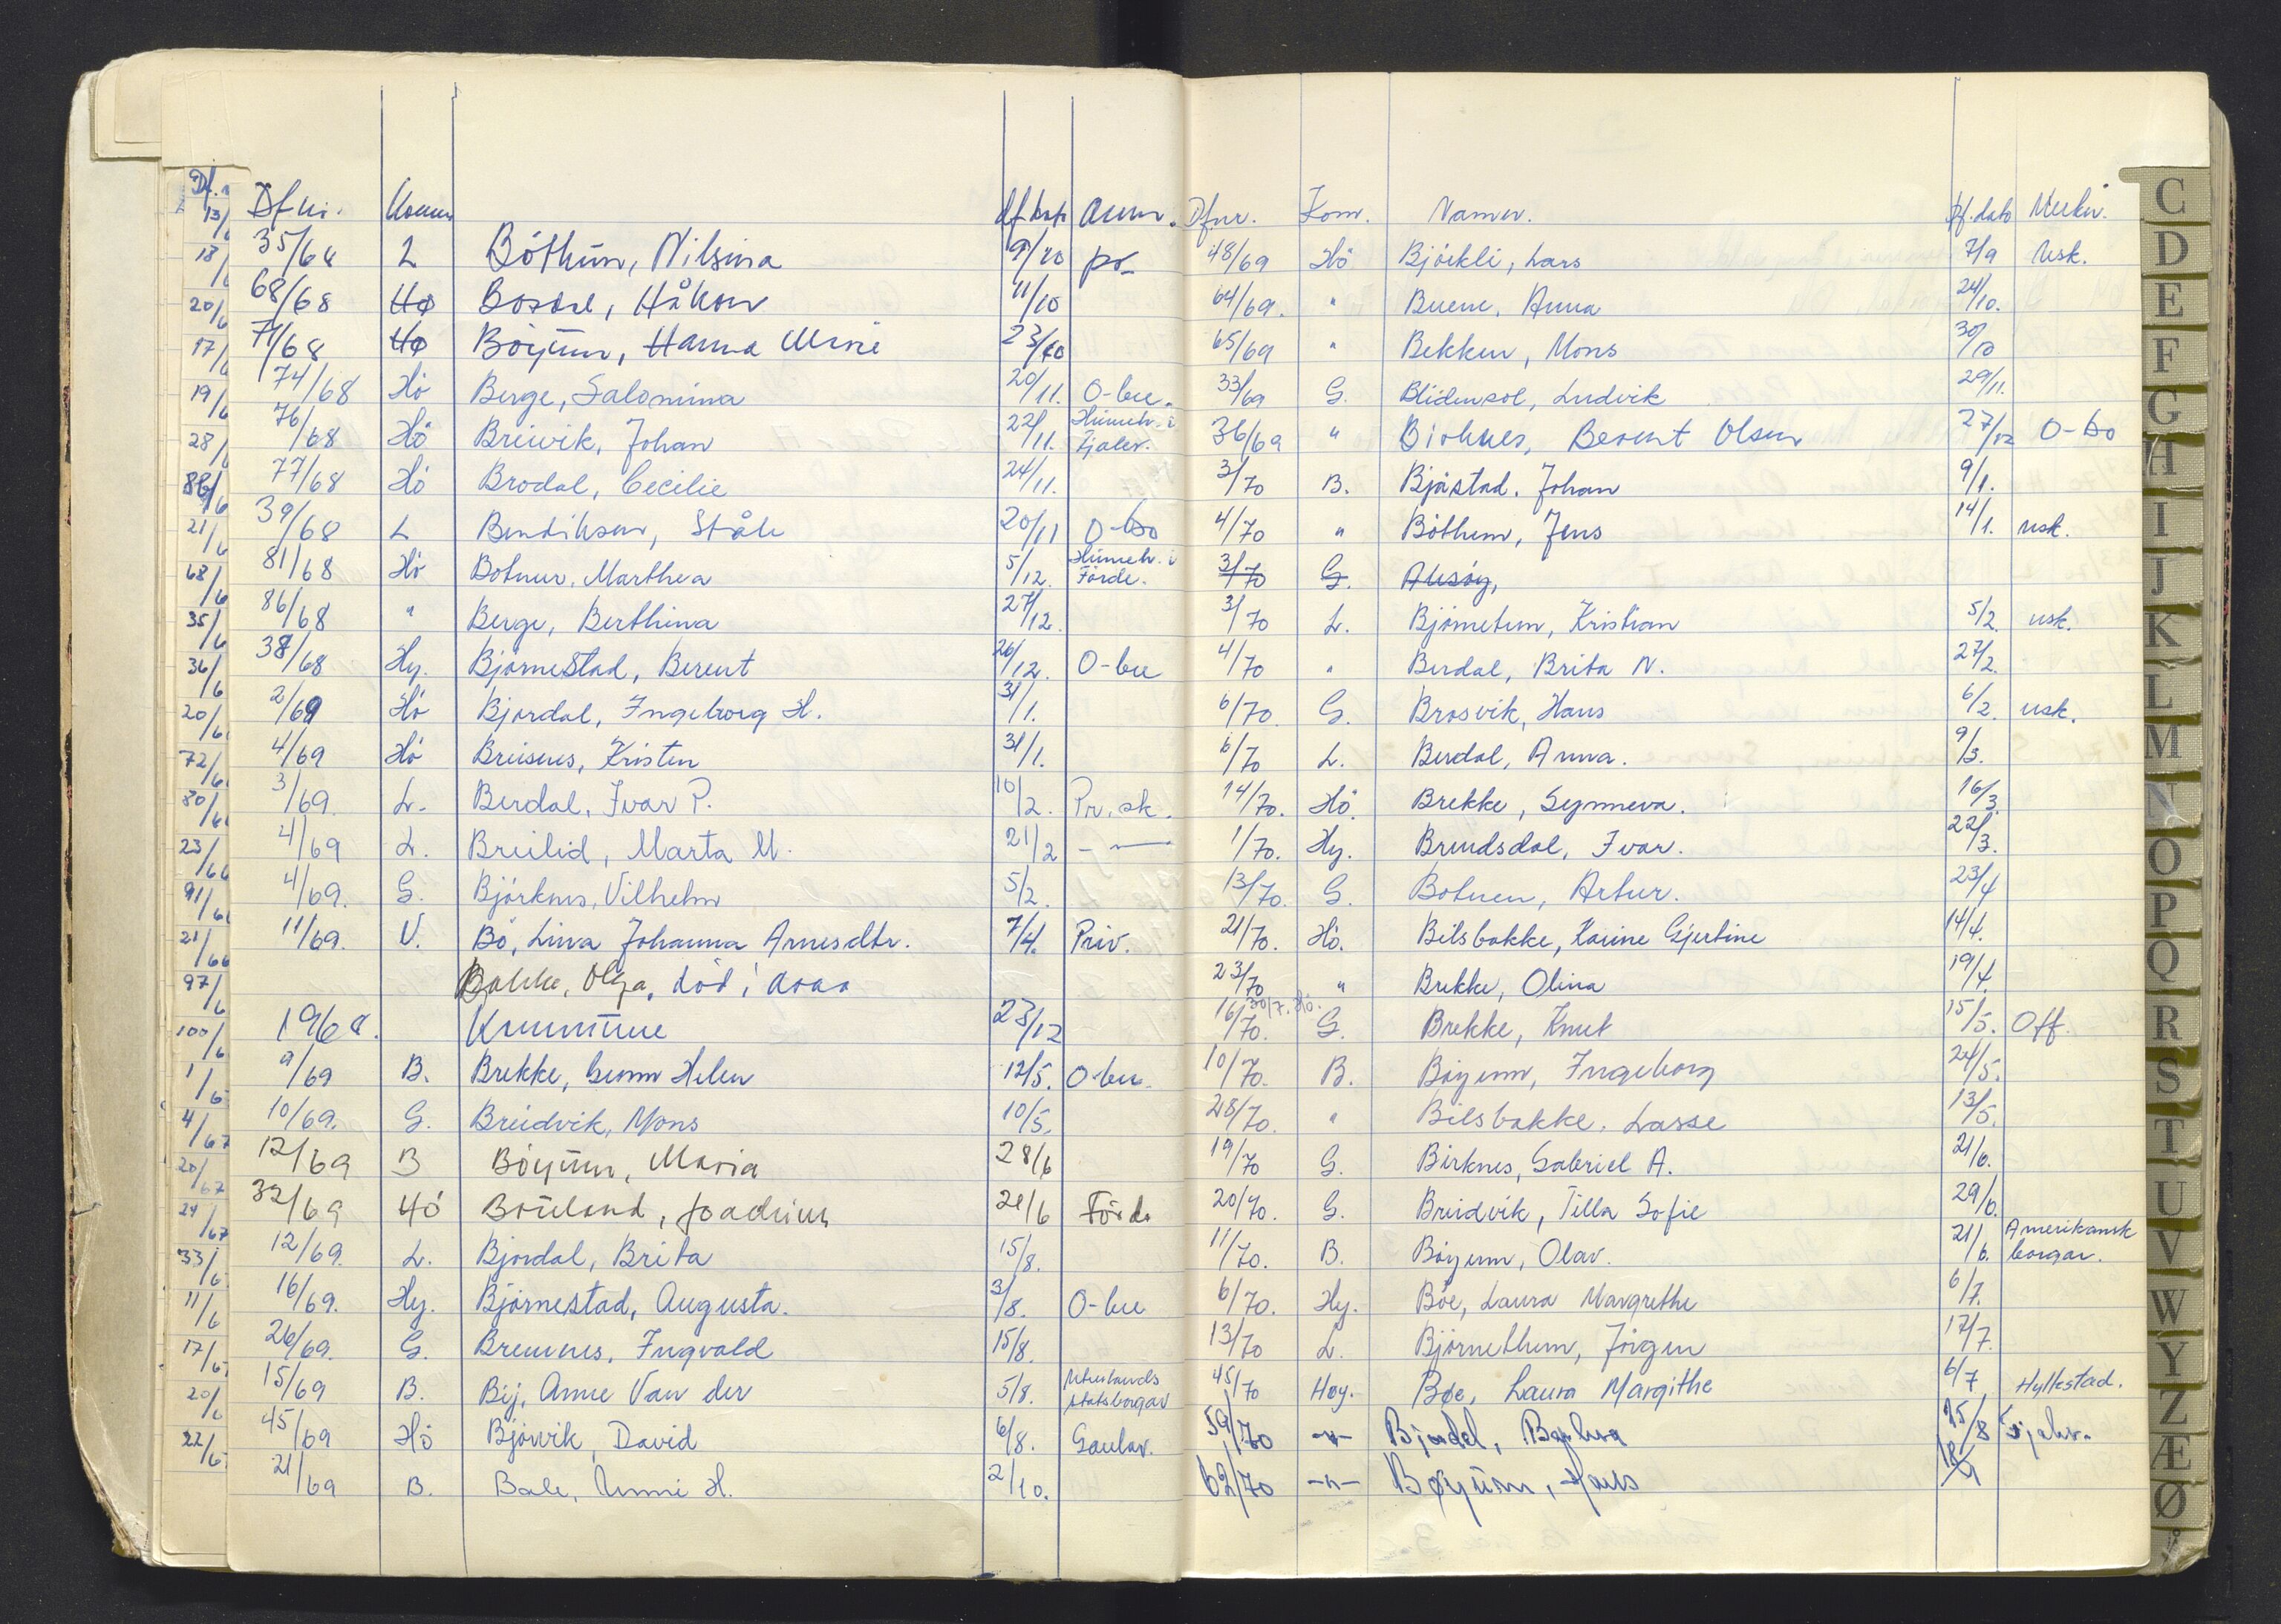 Dfnr. Komm df.dato Anm.
35/68 L Bóthun, Nilsina 9/10
68/68 Hø Håkon 11/10
71/68 Hø Böyum, Hanna 23/10
74/68 Hö Berge, Salomina 20/11. O-bu.
76/68 Hö Breivik, Johan 22/11. Heimeh. i
77/68 Hö Brodal, Cecilie 24/11.
39/68 L Bendiksen, Ståle 20/11 O-bo
81/68 Hö Botnen, Marthea 5/12. Heimeh. i Förde.
86/68 " Berge, Berthina 27/12.
38/68 Hy. Björnestad, Berent 26/12. O-bu
2/69 Hö Bjordal, Ingeborg H. 31/1.
4/69 Hö Breisnes, Kristen 31/1.
3/69. L. Berdal, Ivar P. 10/2. Pr. sk.
4/69 L. Breilid, Marta M. 21/2 - —
4/69. G. Björknes, Vilhelm 5/2.
11/69. V. Bö, Lina Johanna Arnesdtr. 7/4. Priv.
Bakke, Olga, död i
1968. 23/12
9/69 B. Brekke, Gunn Helen 12/5. O-bu.
10/69. G. Breidvik, Mons 10/5.
12/69 B Böyum, Maria 28/6
32/69 Hö 21/6 Förde
12/69. L. Bjordal, Brita 15/8.
16/69. Hy. Björnestad, Augusta. 3/8. O-bu
26/69. G. Bremnes, Ingvald 15/8.
15/69 B. Bij, Anne Van der 5/8. statsborgar
45/69 Hö Björvik, David 6/8. Gaular.
21/69 B. Bale, Unni H. 2/10.
Dfnr. Kom. Namn. Df.dato Merkn.
48/69 Hö Bjórkli, Lars 7/9 Usk.
64/69. " Buene, Anna 24/10.
65/69 " Bekken, Mons 30/10
33/69 G. Blidensol, Ludvik 29/11.
36/69 " Birknes, Berent Olsen 27/12 O-bo
3/70 B. Bjåstad, Johan 9/1.
4/70 " Böthum, Jens 14/1. usk.
3/70 G.
3/70 L. Björnetun, Kristian 5/2. usk.
4/70 " Berdal, Brita N. 27/2.
6/70. G. Brosvik, Hans 6/2. usk.
6/70 L. Berdal, Anna. 9/3.
14/70. Hö. Brekke, Synneva. 16/3.
1/70. Hy. Brendsdal, Ivar. 22/3.
13/70. G. Botnen, Artur. 23/4
21/70. Hö. Bilsbakke, Karine Gjertine 14/4.
23/70 " Brekke, Olina 19/4.
30/7. Hö.
16/70. G. Brekke, Knut 15/5. Off.
10/70. B. Böyum, Ingeborg 24/5.
28/70. " Bilsbakke, Lasse 13/5.
19/70 G. Birknes, Gabriel A. 21/6.
20/70. G. Breidvik, Tilla Sofie 29/6.
11/70. B. Böyum, Olav. 21/6. Amerikansk borgar.
6/70. Hy. Böe, Laura Margrethe 6/7.
13/70 L. Björnethun, Jörgen 17/7.
45/70 Høy. Bøe, Laura Margithe 6/7 Hyllestad.
59/70 -"- 25/8
62/70 -"- Bøyum, Hans
C
D
E
F
G
H
I
J
K
L
M
N
O
P
Q
R
S
T
U
V
W
Y
Z
Æ
Ø